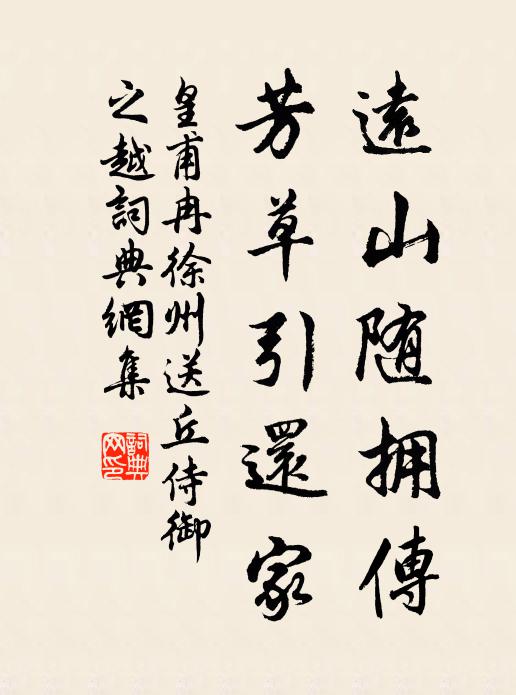 遠山随拥傳
芳草引還家
皇甫冉徐州送丘侍御
之越詞典網集
詞典网印